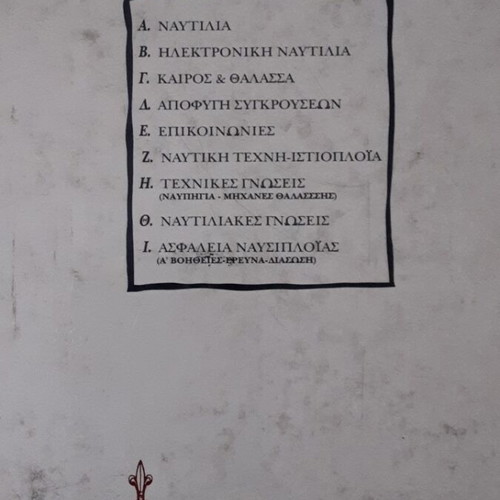 Α. ΝΑΥΤΙΛΙΑ
Β. ΗΛΕΚΤΡΟΝΙΚΗ ΝΑΥΤΙΛΙΑ
Γ. ΚΑΙΡΟΣ & ΘΑΛΑΣΣΑ
Δ. ΑΠΟΦΥΓΗ ΣΥΓΚΡΟΥΣΕΩΝ
Ε. ΕΠΙΚΟΙΝΩΝΙΕΣ
Ζ. ΝΑΥΤΙΚΗ ΤΕΧΝΗ-ΙΣΤΙΟΠΛΟΪΑ
Η. ΤΕΧΝΙΚΕΣ ΓΝΩΣΕΙΣ
(ΝΑΥΠΗΓΙΑ - ΜΗΧΑΝΕΣ ΘΑΛΑΣΣΣΗΣ)
Θ. ΝΑΥΤΙΛΙΑΚΕΣ ΓΝΩΣΕΙΣ
Ι. ΑΣΦΑΛΕΙΑ ΝΑΥΣΙΠΛΟΪΑΣ
(Α' ΒΟΗΘΕΙΕΣ-ΕΡΕΥΝΑ-ΔΙΑΣΩΣΗ)